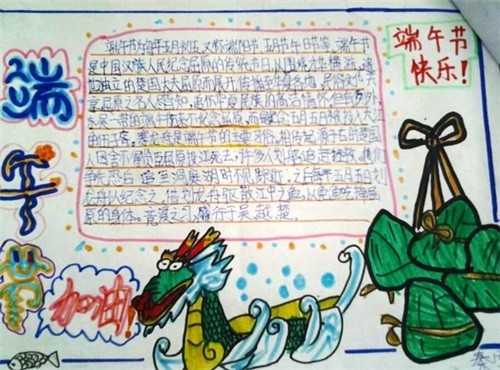 端午节
快乐!
端
午
节
端午节为每年五月初五,又称端阳节、五月节、
是中国汉族人民纪念屈原的传统节日,以围绕才华横溢、遗
世独立的楚国大夫屈原而展开,传播至华夏各地,民俗文
屈原之名人尽皆知,追怀华夏民族的高洁情怀。但也有例外,
东吴一带的端午
不纪念屈原,
五月五日被投入大江
的伍子胥,
是端午节的主要习俗。相传起源于古时楚国
人因舍不得贤臣屈原投江死去,许多人划船追赶拯救。他们
争先恐后,追至洞庭湖时不见踪迹。之后每年五月五日划
龙舟以纪念之。借划龙舟驱散江中之鱼,以免鱼吃掉屈
原的身体。竞渡之习,盛行于吴、越、楚。
加油